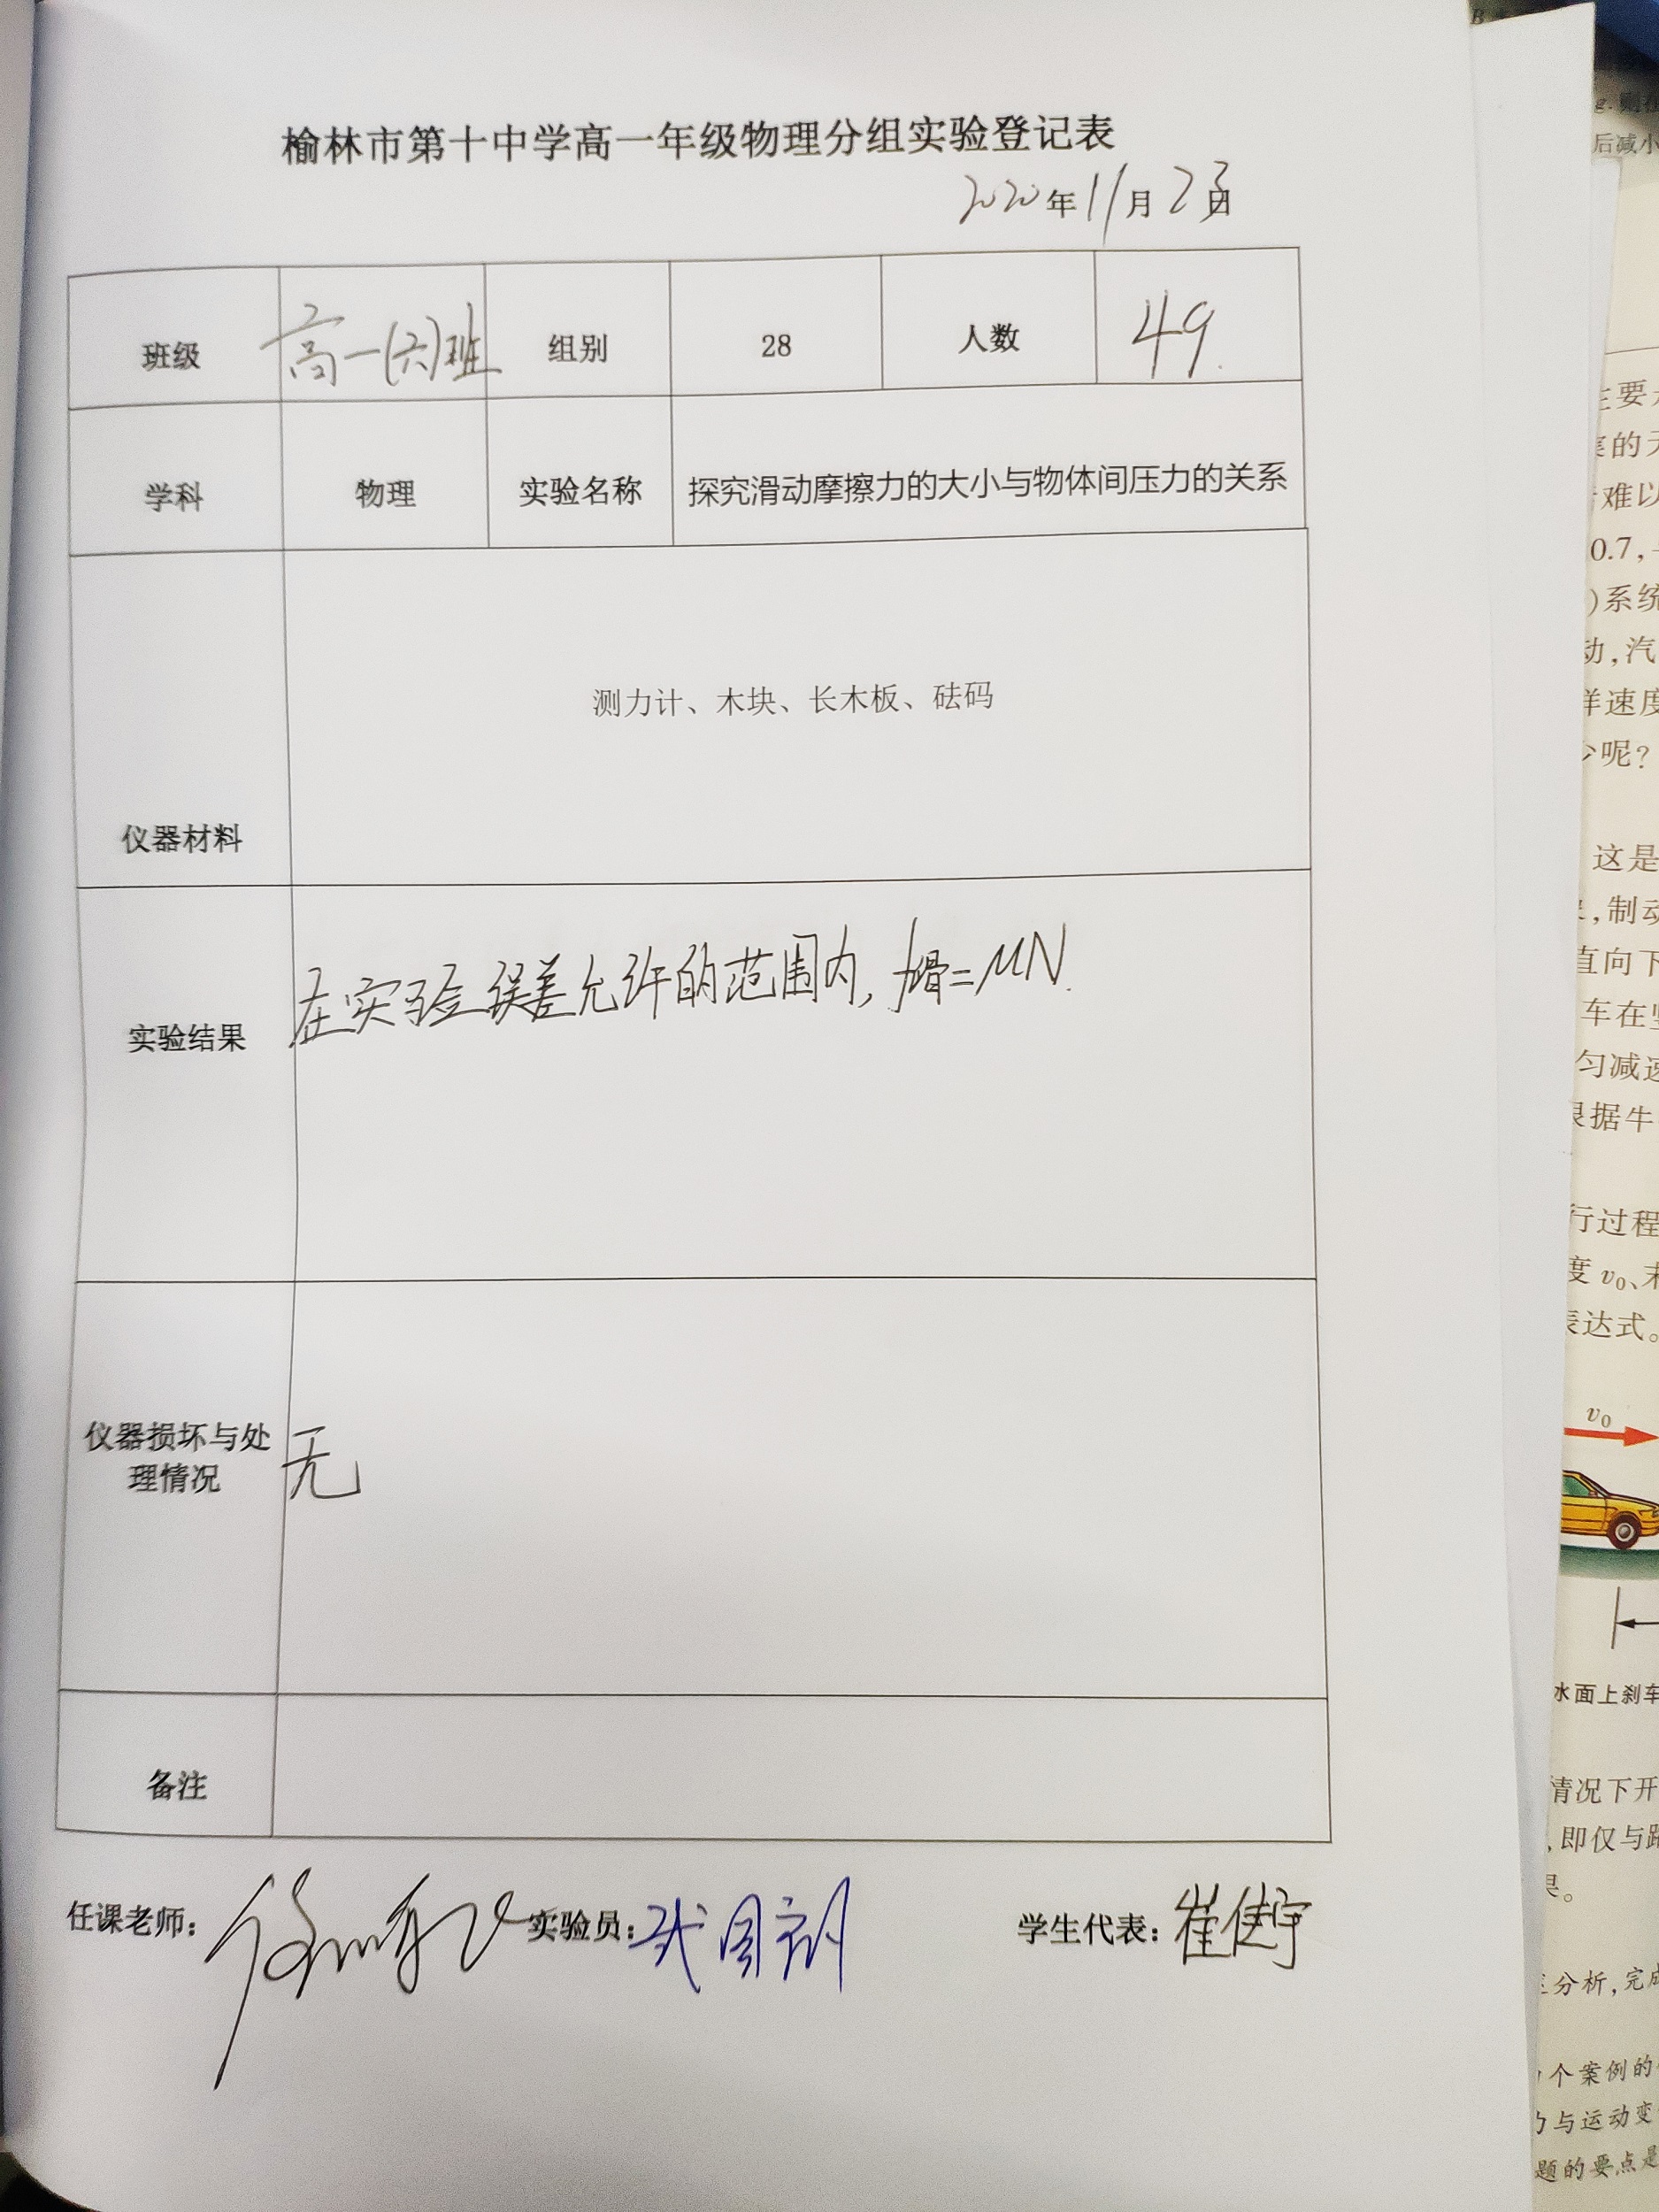 榆林市第十中学高一年级物理分组实验登记表
2020年11月23日
班级 高一(六)班 组别 28 人数 49.
学科 物理 实验名称 探究滑动摩擦力的大小与物体间压力的关系
仪器材料 测力计、木块、长木板、砝码
实验结果 在实验误差允许的范围内, f滑=μN.
仪器损坏与处
理情况
无
备注
任课老师: 实验员: 学生代表: 崔健宇
主要
的
难以
0.7,
)系统
动,汽
样速度
少呢?
这是
,制动
直向下
车在
匀减速
根据牛
行过程
度 v₀、末
表达式。
v₀
水面上刹车
情况下开
,即仅与路
果。
分析,完成
个案例的
力与运动变
题的要点是
后减小